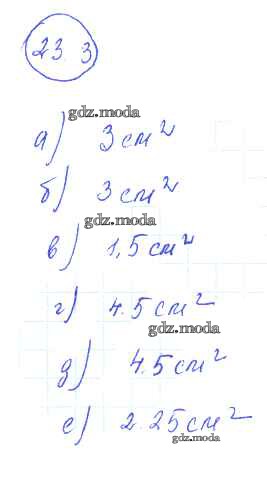 23.3
gdz.moda
а) 3 см²
б) 3 см²
gdz.moda
в) 1,5 см²
г) 4.5 см²
gdz.moda
д) 4.5 см²
е) 2.25 см²
gdz.moda